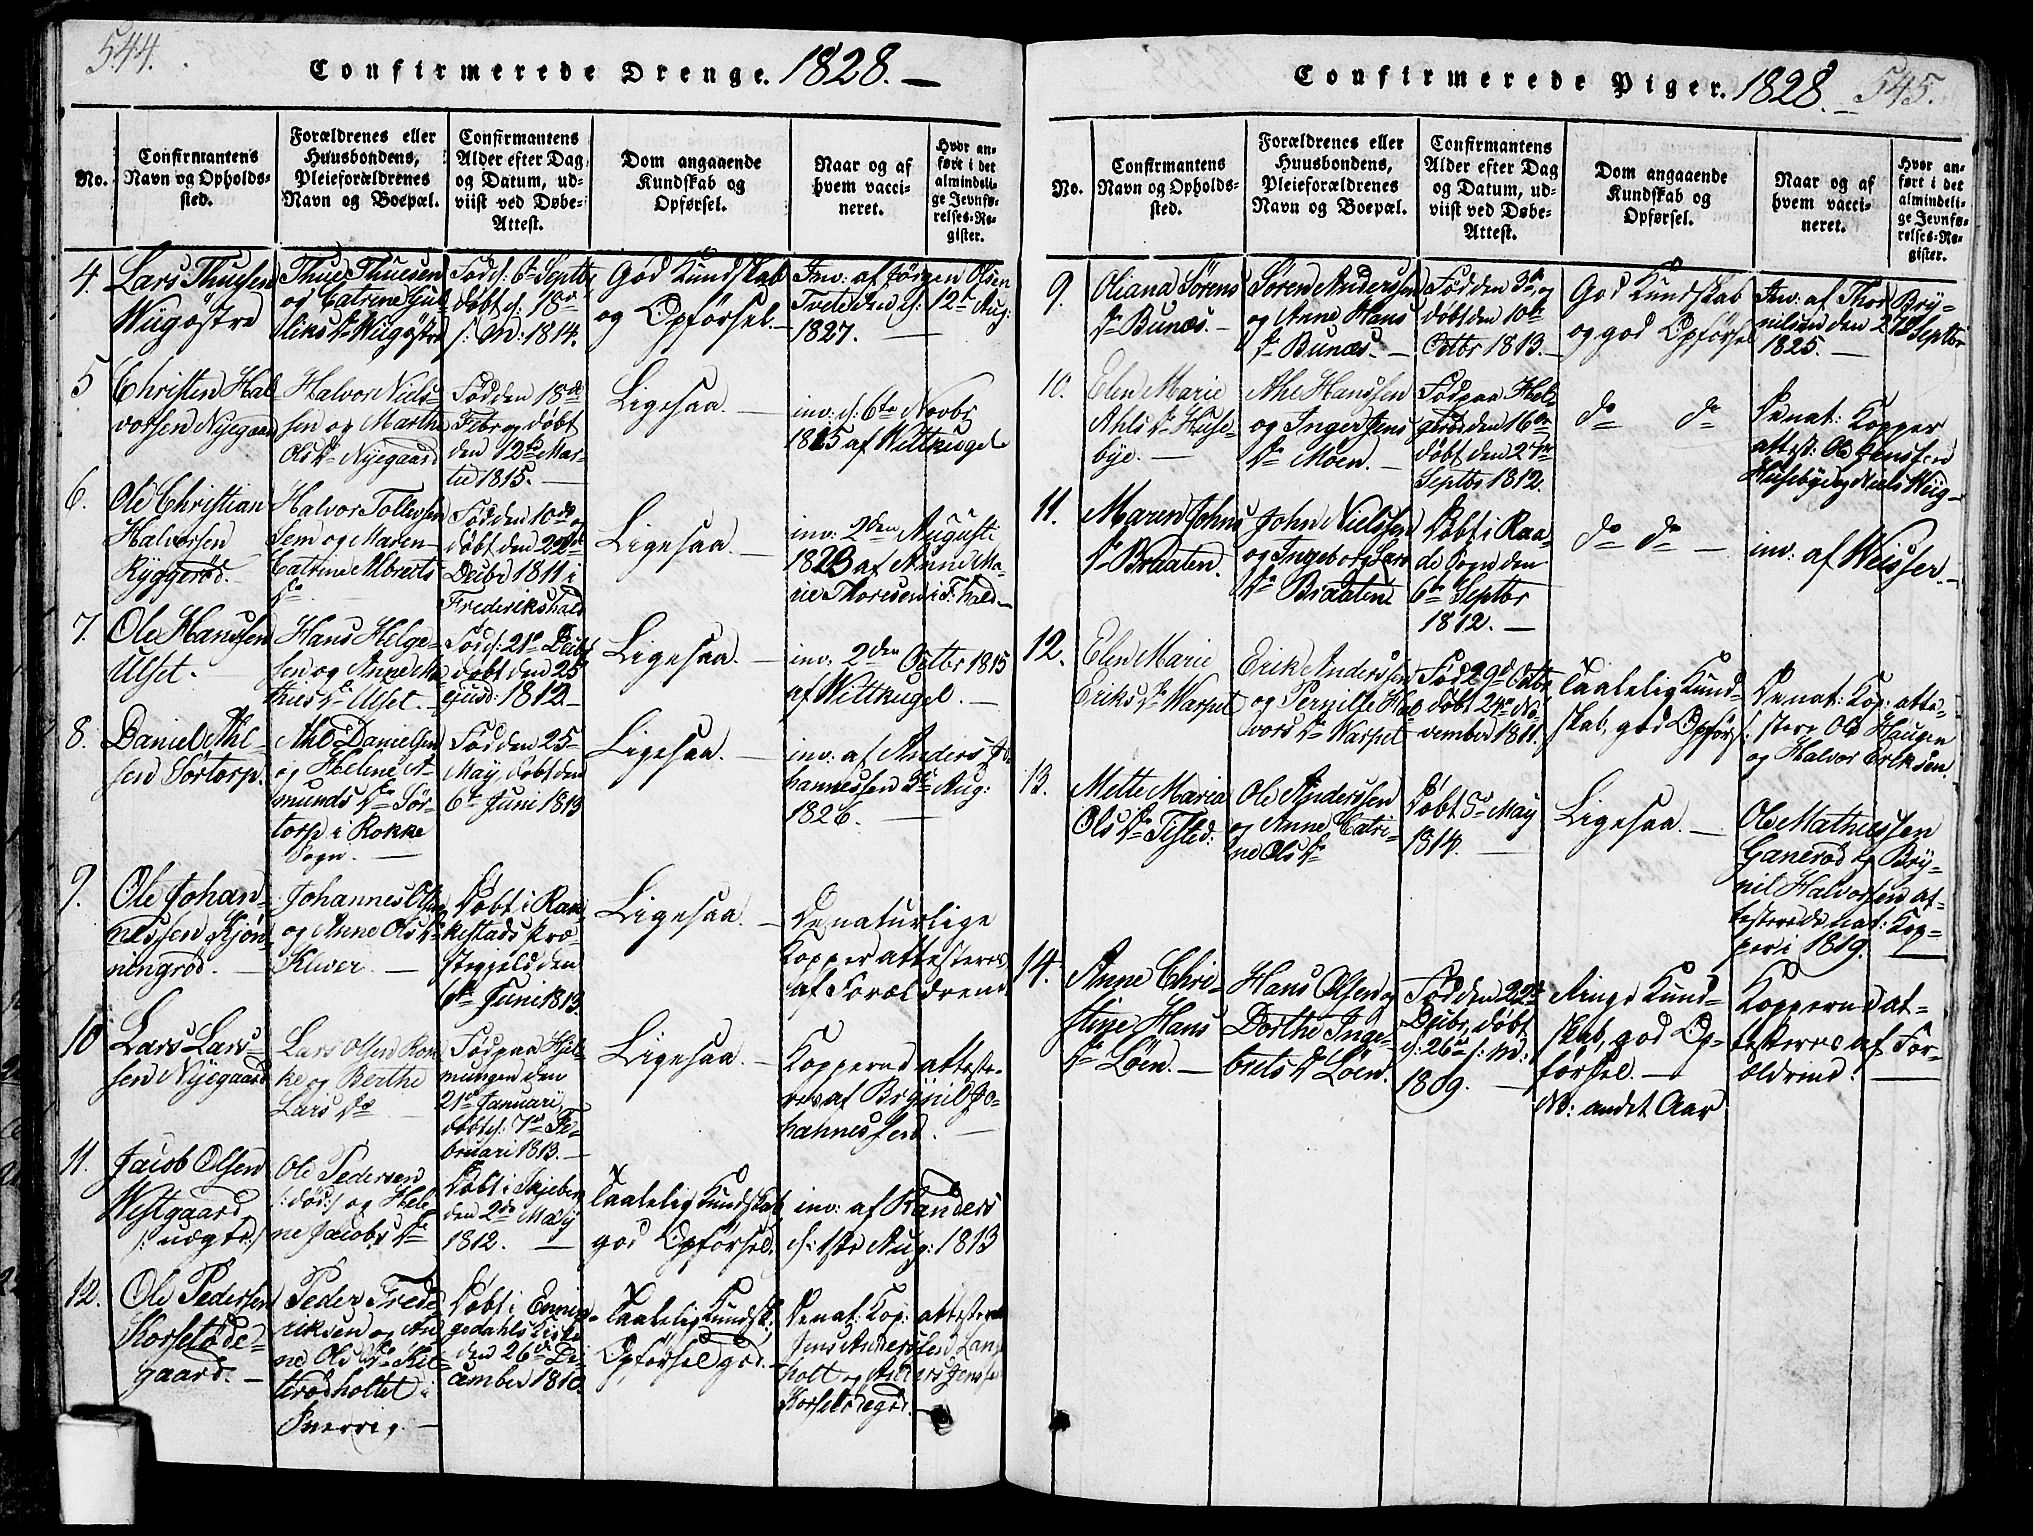 544.
Confirmerede Drenge. 1828. —
No.
Confirmantens
Navn og Opholds-
sted.
Forældrenes eller
Huusbondens,
Pleieforældrenes
Navn og Boepæl.
Confirmantens
Alder efter Dag
og Datum, ud-
viist ved Døbe-
Attest.
Dom angaaende
Kundskab og
Opførsel.
Naar og af
hvem vacci-
neret.
Hvor an-
ført i det
almindeli-
ge Jevnfø-
relses-Re-
gister.
4.
Lars Thuesen
Wigøstre
Thue Thuesen
og Catrine Gul-
liks Dr Wiigøstre
Fød d: 6te Septbr
døbt d: 18de
s: M: 1814.
God Kundskab
og Opførsel. —
Inv: af Jørgen Olsen
Tvete den d: 12te Aug:
1827. —
5
Christen Hal
vorsen Nyegaard
Halvor Niels-
sen og Marthe
Ols Dr Nyegaard
Fød den 18de
Febr og døbt
den 12te Mar-
tii 1815. —
Ligesaa. —
inv: d: 6te Novbr
1815 af Wittkugel
6.
Ole Christian
Halvorsen
Ryggerød.
Halvor Tollevsen
Sem og Maren
Catrine Albrets
Dr
Fød den 10de og
døbt den 22de
Decbr 1811 i
Frederikshald
Ligesaa. —
inv: 2den Augusti
1823 af Anne Ma-
rie Thoresen i F:hald —
7.
Ole Hanssen
Ulset.
Hans Helge-
sen og Anne Ma-
thies Dr Ulset. —
Fød d: 21de Decbr
døbt den 25
ejusd: 1812 —
Ligesaa. —
inv: 2den Octbr 1815
af Wittkugel. —
8.
Daniel Ahl-
sen Sørtorp.
Ahle Danielsen
og Helene A-
munds Dr Sør-
torp i Rokke
Sogn. —
Fød den 25
May, døbt den
6te Juni 1813
Ligesaa. —
inv: af Anders Jo-
hannessen 3de Aug:
1826. —
9.
Ole Johan-
nessen Kjøn-
ningrød. —
Johannes Olsen
og Anne Ols Dr
Klever. —
Døbt i Rak-
kestads Præ-
stegjeld den
6te Juni 1813.
Ligesaa. —
De naturlige
Kopper attesteres
af Forældrene
10
Lars Lars-
sen Nyegaard
Lars Olsen Rom
ke og Berthe
Lars Dr —
Fød paa Hjel-
mungen den
21de Januari,
døbt d: 7de Fe-
bruari 1813. —
Ligesaa. —
Kopperne atteste-
res af Brynild Jo-
hannessen. —
11.
Jacob Olsen
Westgaard
/: uægte :/
Ole Pedersen
/: død :/ og Hele-
ne Jacobs Dr
Døbt i Skjeberg
den 2den May
1812. —
Taalelig Kundskab,
god Opførsel.
inv: af Randers
d: 1ste Aug: 1813
12.
Ole Pedersen
Korsetøde-
gaard. —
Peder Frede-
riksen og An-
ne Ols Dr Kil-
lerødholtet i
Sverrig. —
Døbt i Enning-
dahls Kirke
den 26de De-
cember 1810.
Taalelig Kundsk:
Opførsel god. —
De nat: Kop: attesteres
Jens Anderssen Lang-
holt og Anders Jenssen
Korsetødegrd. —
Confirmerede Piger. 1828. — 545.
No.
Confirmantens
Navn og Opholds-
sted.
Forældrenes eller
Huusbondens,
Pleieforældrenes
Navn og Boepæl.
Confirmantens
Alder efter Dag
og Datum, ud-
viist ved Døbe-
Attest.
Dom angaaende
Kundskab og
Opførsel.
Naar og af
hvem vacci-
neret.
Hvor an-
ført i det
almindeli-
ge Jevnfø-
relses-Re-
gister.
9.
Oliana Sørens
Dr Bunæs. —
Søren Anderssen
og Anne Hans
Dr Bunæs. —
Fød den 3de, og
døbt den 10de
Octbr 1813. —
God Kundskab
og god Opførsel
Inv: af Thor Bry-
nilsen den 27de Septbr
1825. —
10.
Elen Marie
Ahls Dr Huse-
bye. —
Ahle Hanssen
og Inger Jens
Dr Moen. —
Fød paa Hel-
gerød den 16de
døbt den 27de
Septbr 1812.
do do
De nat: Kopper
attest: Ole Jenssen
Husebye og Niels Wiig —
11.
Maren Johns
Dr Braaten.
John Nielssen
og Ingeborg Lars
Dr Braaten
Døbt i Raa-
de Sogn den
6te Septbr
1812. —
do do —
inv: af Weisser. —
12.
Elen Marie
Eriks Dr Warpet
Erik Anderssen
og Pernille Hal
vors Dr Warpet
Fød 29de Octbr
døbt 24de No-
vember 1811.
Taalelig Kund-
skab, god Opførs:
De nat: Kop: atte-
stere Ole Haugen
og Halvor Eriksen
13.
Mette Maria
Ols Dr Tisted.
Ole Anderssen
og Anne Catri-
ne Ols Dr
Døbt 5te May
1814. —
Ligesaa. —
Ole Mathiessen
Ganerød og Bry-
nil Halvorsen at-
testere de nat: Kop-
per i 1819. —
14.
Anne Chri-
stine Hans
Dr Løen. —
Hans Olsen og
Dorthe Inge-
brets Dr Løen.
Fød den 22de
Decbr, døbt
d: 26de s: M:
1809. —
Ringe Kund-
skab, god Op-
førsel. —
No: andet Aar
Kopperne at-
testeres af For-
ældrene. —